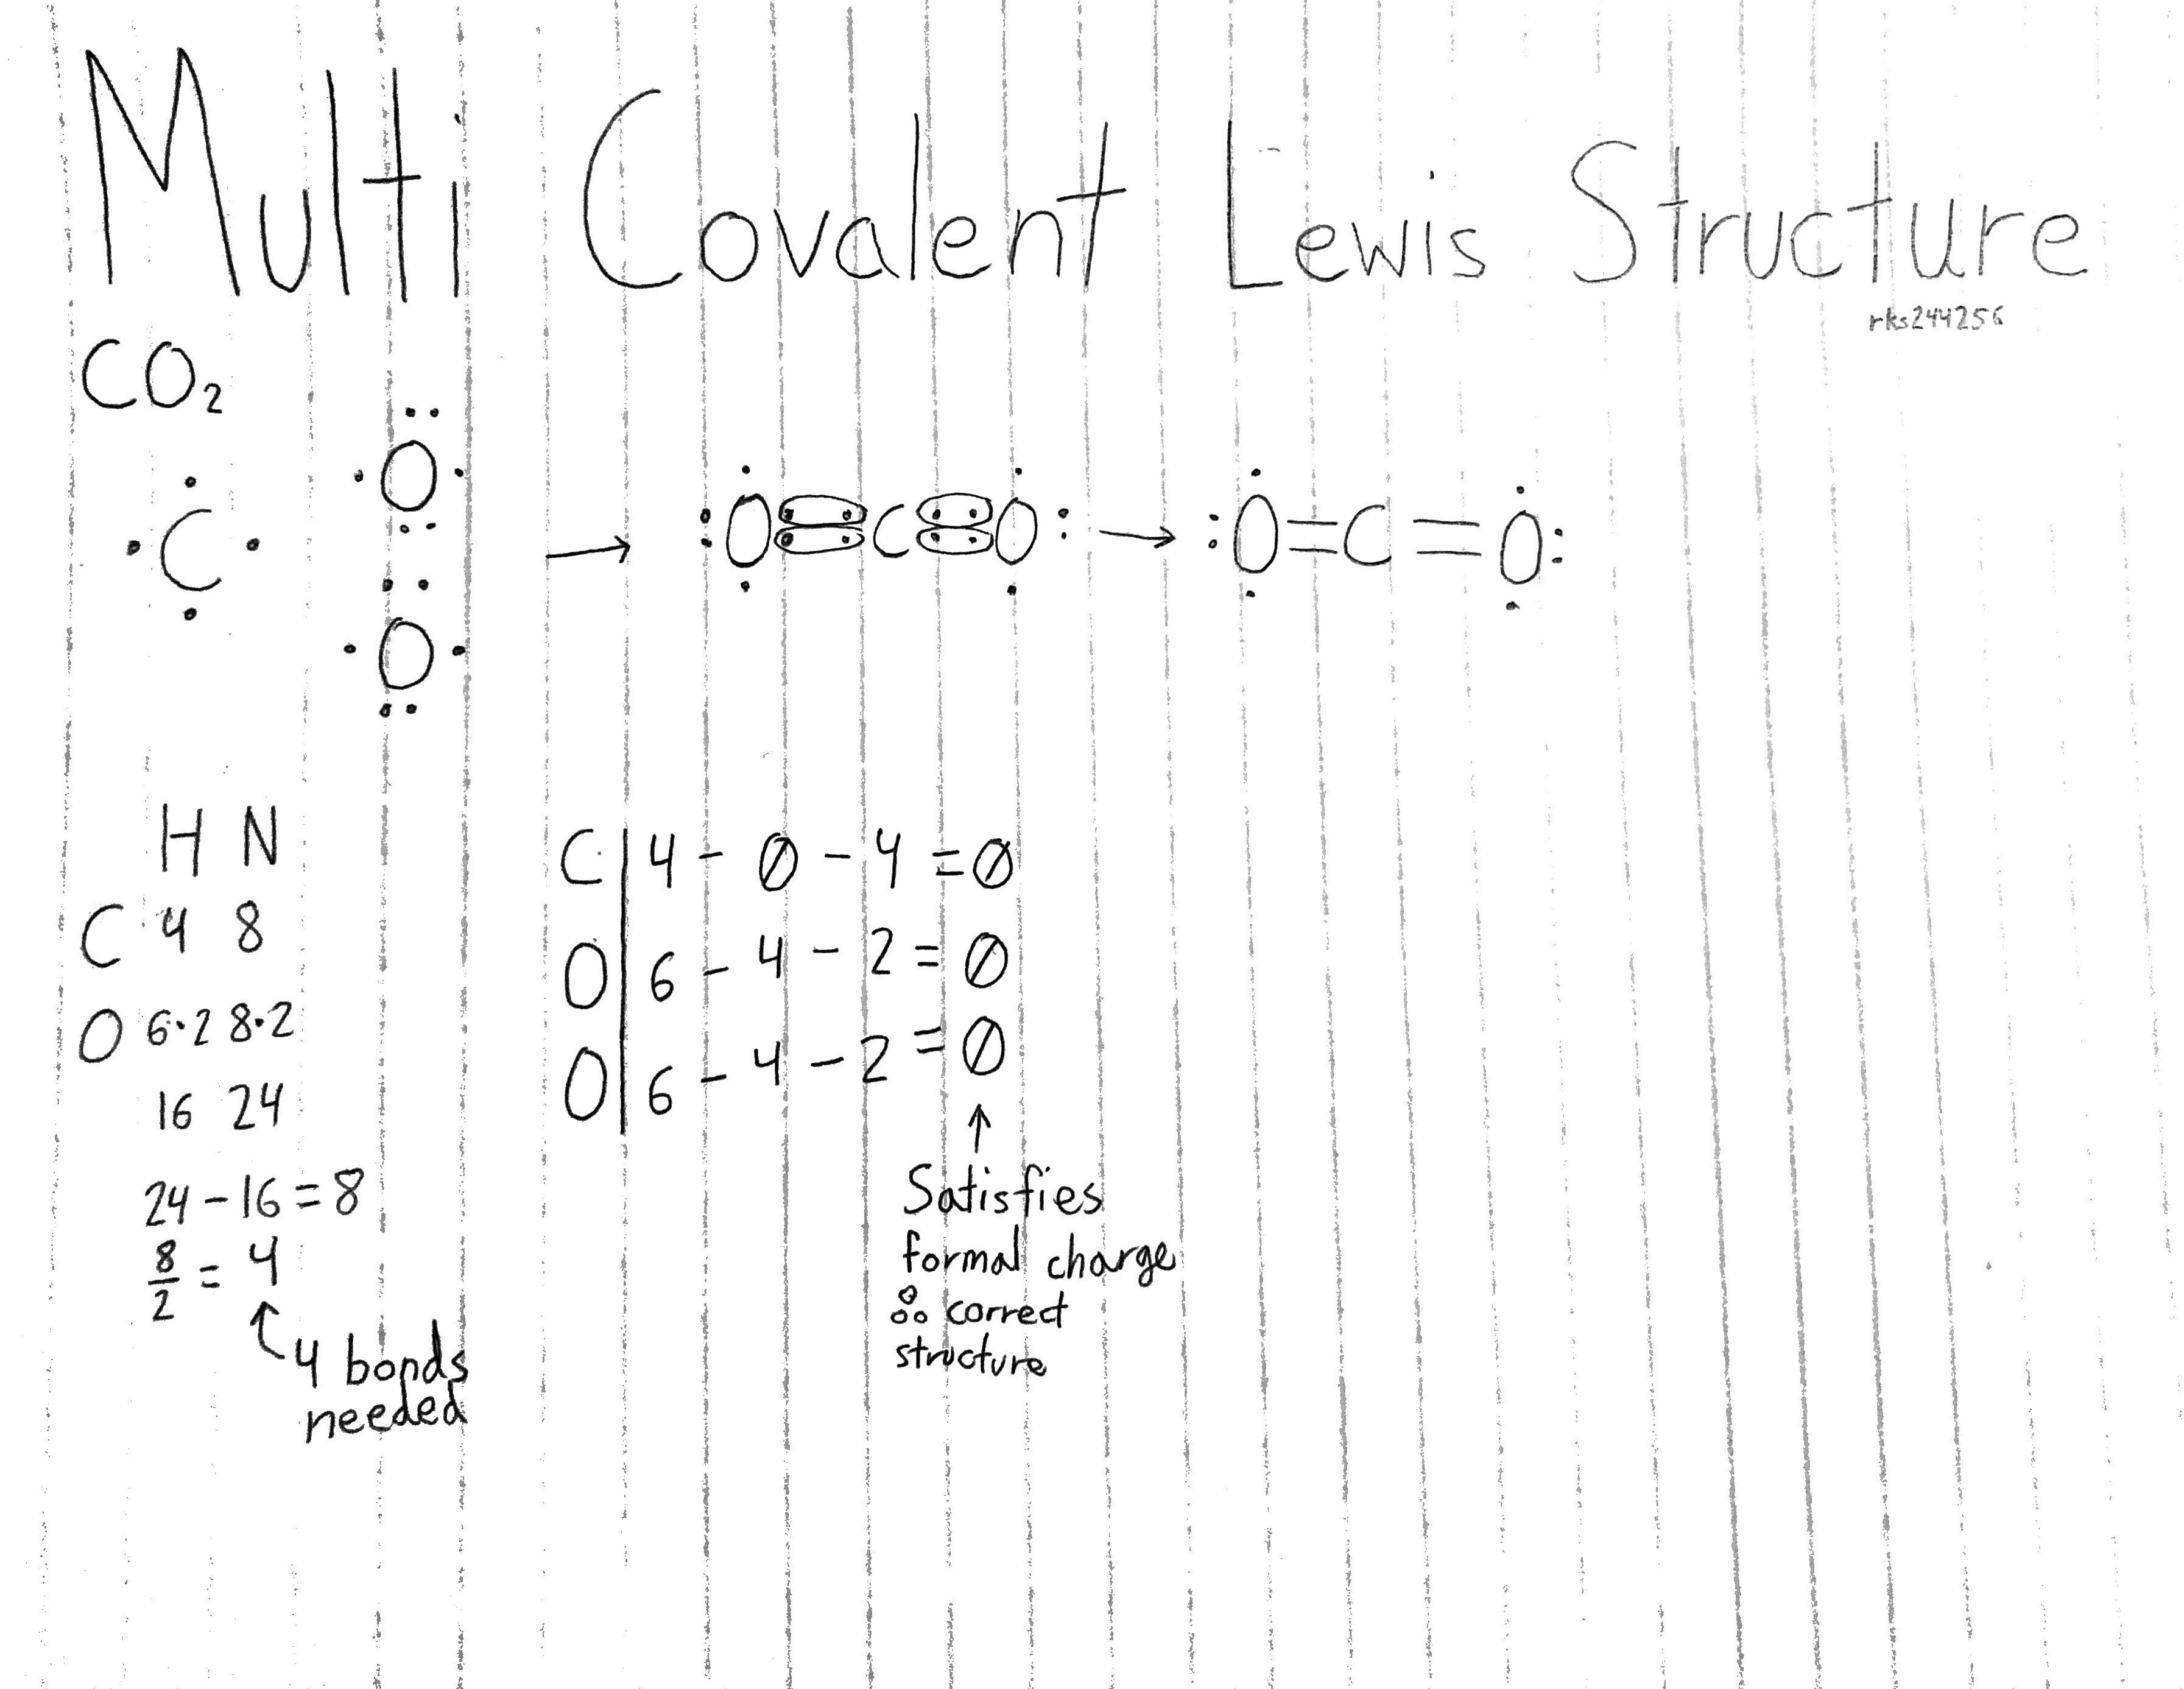 Multi Covalent Lewis Structure
rks244256
CO₂
·C· ·O· → :O C O: → :O=C=O:
·O·
H N
C 4 8
O 6·2 8·2
16 24
24 - 16 = 8
8/2 = 4
4 bonds
needed
C | 4 - 0 - 4 = 0
O | 6 - 4 - 2 = 0
O | 6 - 4 - 2 = 0
↑
Satisfies
formal charge
∴ correct
structure